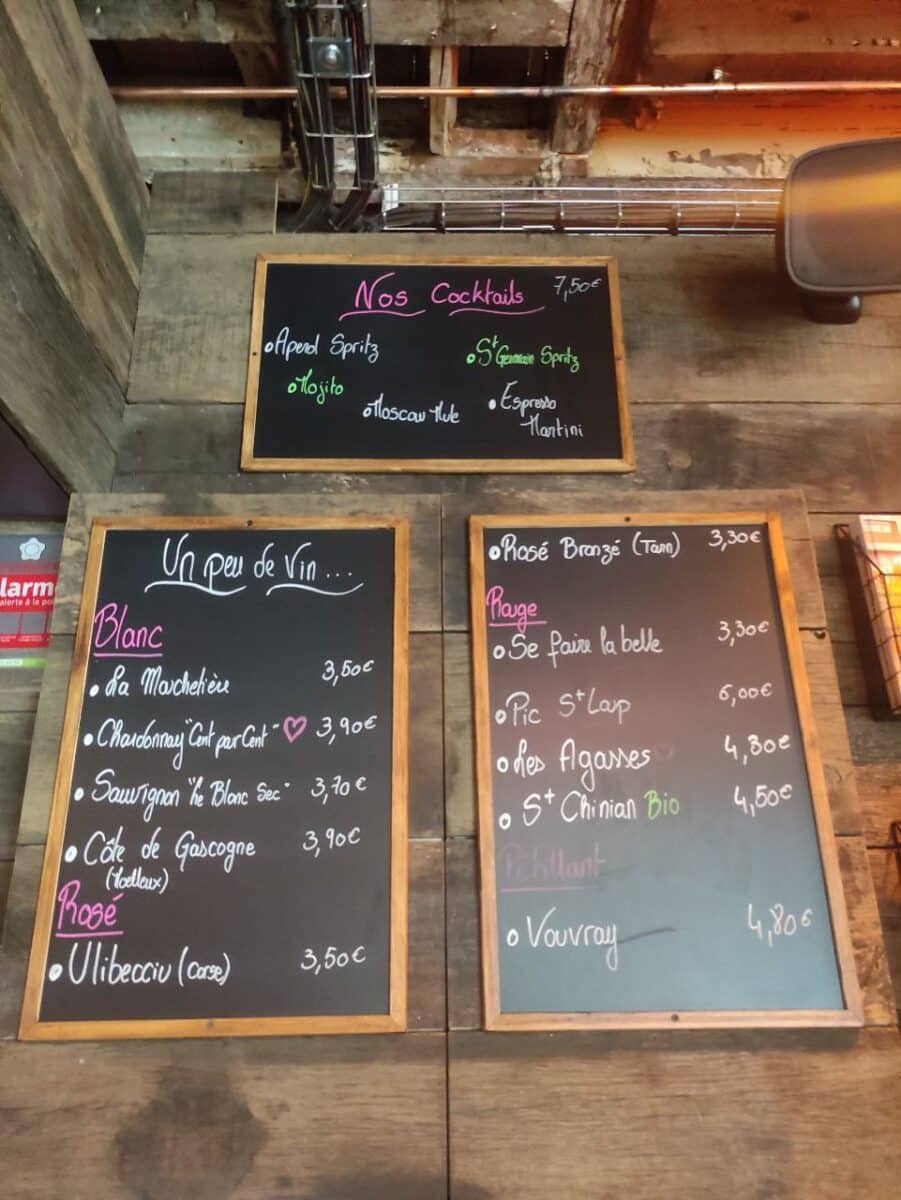 Nos Cocktails 7,50€
•Aperol Spritz
•St Germain Spritz
•Mojito
•Moscow Mule
•Espresso
Martini
Un peu de Vin...
Blanc
• La Marchetière 3,50€
• Chardonnay "Cent par Cent" ♡ 3,90€
• Sauvignon "Le Blanc Sec" 3,70€
• Côte de Gascogne 3,90€
(Moelleux)
Rosé
• Ulibecciu (Corse) 3,50€
• Rosé Bronzé (Tarn) 3,30€
Rouge
• Se faire la belle 3,30€
• Pic St Loup 6,00€
• Les Agasses 4,80€
• St Chinian Bio 4,50€
Pétillant
• Vouvray 4,80€
larm
alerte à la po